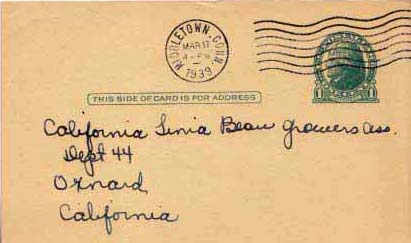 MIDDLETOWN, CONN.
MAR 11
4-PM
1939
1
1
THIS SIDE OF CARD IS FOR ADDRESS
California Limia Bean growers ass.
Dept 44
Oxnard,
California